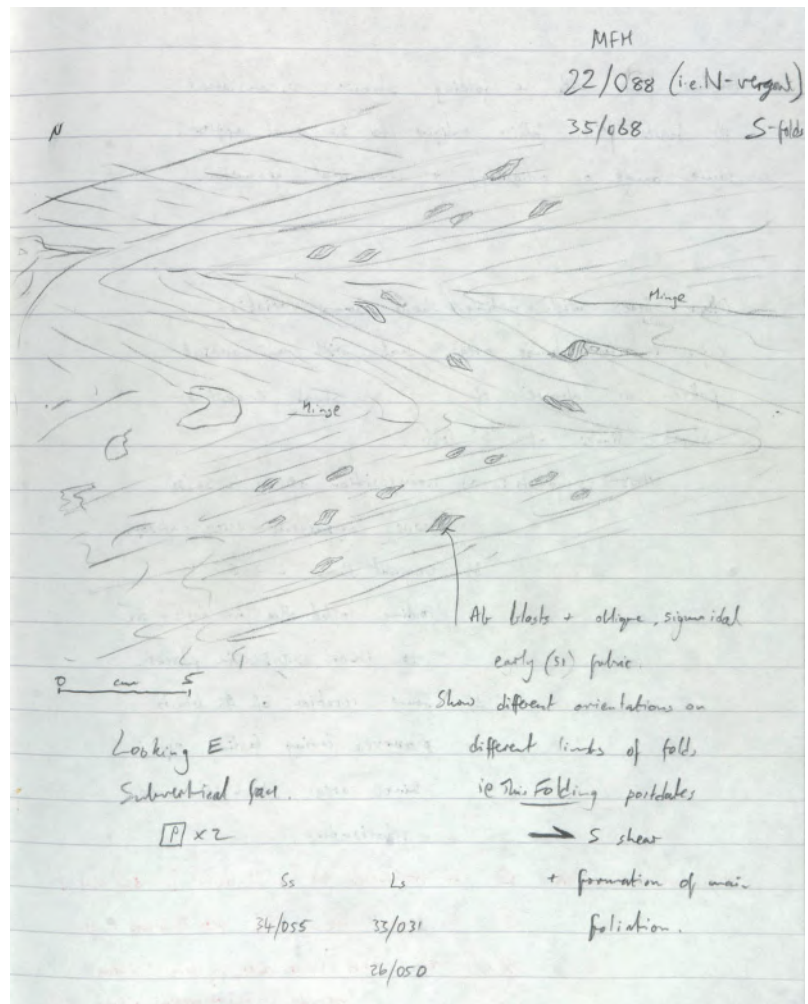 MFH
22/088 (i.e. N-vergent)
35/068 S-folds
N
Hinge
Hinge
Ab blasts + oblique, sigmoidal
early (S1) fabric.
Show different orientations on
different limbs of folds
ie This Folding postdates
→ S shear
+ formation of main
foliation.
0 cm 5
Looking E
Subvertical face.
P x 2
Ss Ls
34/055 33/031
26/050